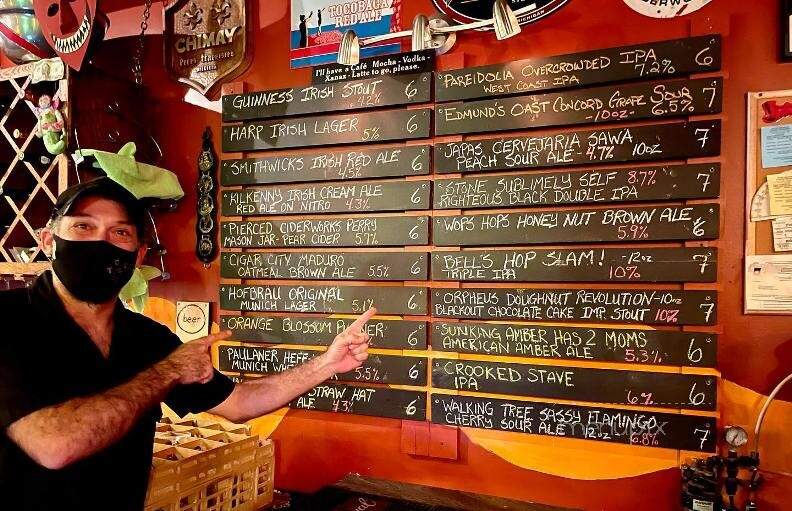 TOCOBAGA
RED ALE
CHIMAY
I'll have a Café Mocha - Vodka -
Xanax - Latte to go, please.
GUINNESS IRISH STOUT 6
4.2%
HARP IRISH LAGER 5% 6
SMITHWICKS IRISH RED ALE 6
4.5%
KILKENNY IRISH CREAM ALE 6
RED ALE ON NITRO 4.3%
PIERCED CIDERWORKS PERRY 6
MASON JAR - PEAR CIDER 5.7%
CIGAR CITY MADURO 6
OATMEAL BROWN ALE 5.5%
HOFBRAU ORIGINAL 6
MUNICH LAGER 5.1%
ORANGE BLOSSOM 6
PAULANER HEFE 6
MUNICH 5.5%
STRAW HAT 6
ALE 4.3%
PAREIDOLIA OVERCROWDED IPA 6
WEST COAST IPA 7.2%
EDMUND'S OAST CONCORD GRAPE SOUR 7
-10oz- 6.5%
JAPAS CERVEJARIA SAWA 7
PEACH SOUR ALE - 4.7% 10oz
STONE SUBLIMELY SELF 8.7% 7
RIGHTEOUS BLACK DOUBLE IPA
WOPS HOPS HONEY NUT BROWN ALE 6
5.9%
BELL'S HOP SLAM! -12oz 7
TRIPLE IPA 10%
ORPHEUS DOUGHNUT REVOLUTION-10oz 7
BLACKOUT CHOCOLATE CAKE IMP. STOUT 10%
SUNKING AMBER HAS 2 MOMS 6
AMERICAN AMBER ALE 5.3%
CROOKED STAVE 6
IPA 6%
WALKING TREE SASSY FLAMINGO 7
CHERRY SOUR ALE 12oz 6.8%
beer